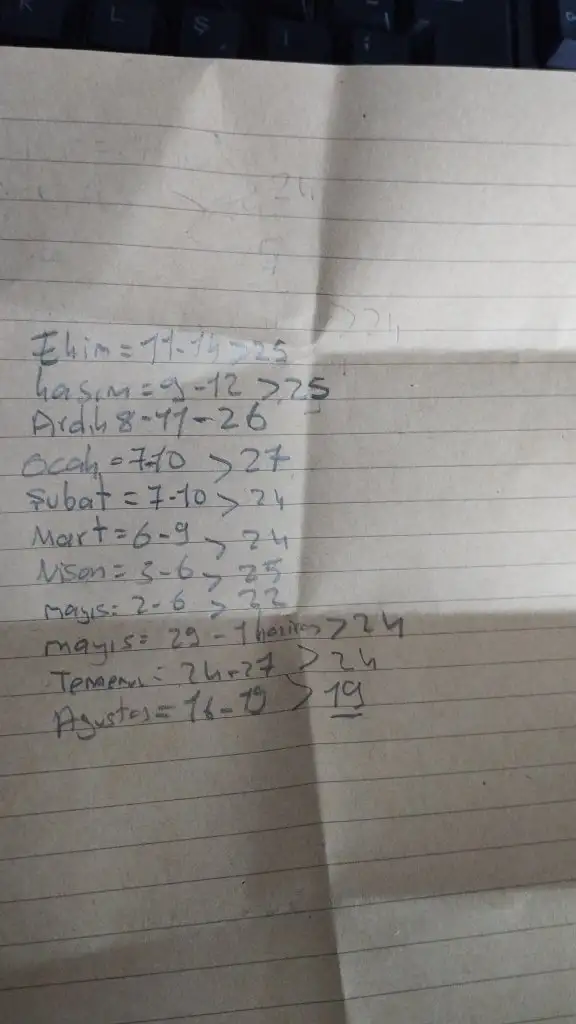 Ekim = 11-14 > 25
kasım = 9-12 > 25
Aralık 8-11-26
Ocak = 7-10 > 27
Şubat = 7-10 > 24
Mart = 6-9 > 24
Nisan = 3-6 > 25
mayıs = 2-6 > 22
mayıs = 29-1 haziran > 24
Temmuz = 24-27 > 24
Agustos = 16-19 > 19